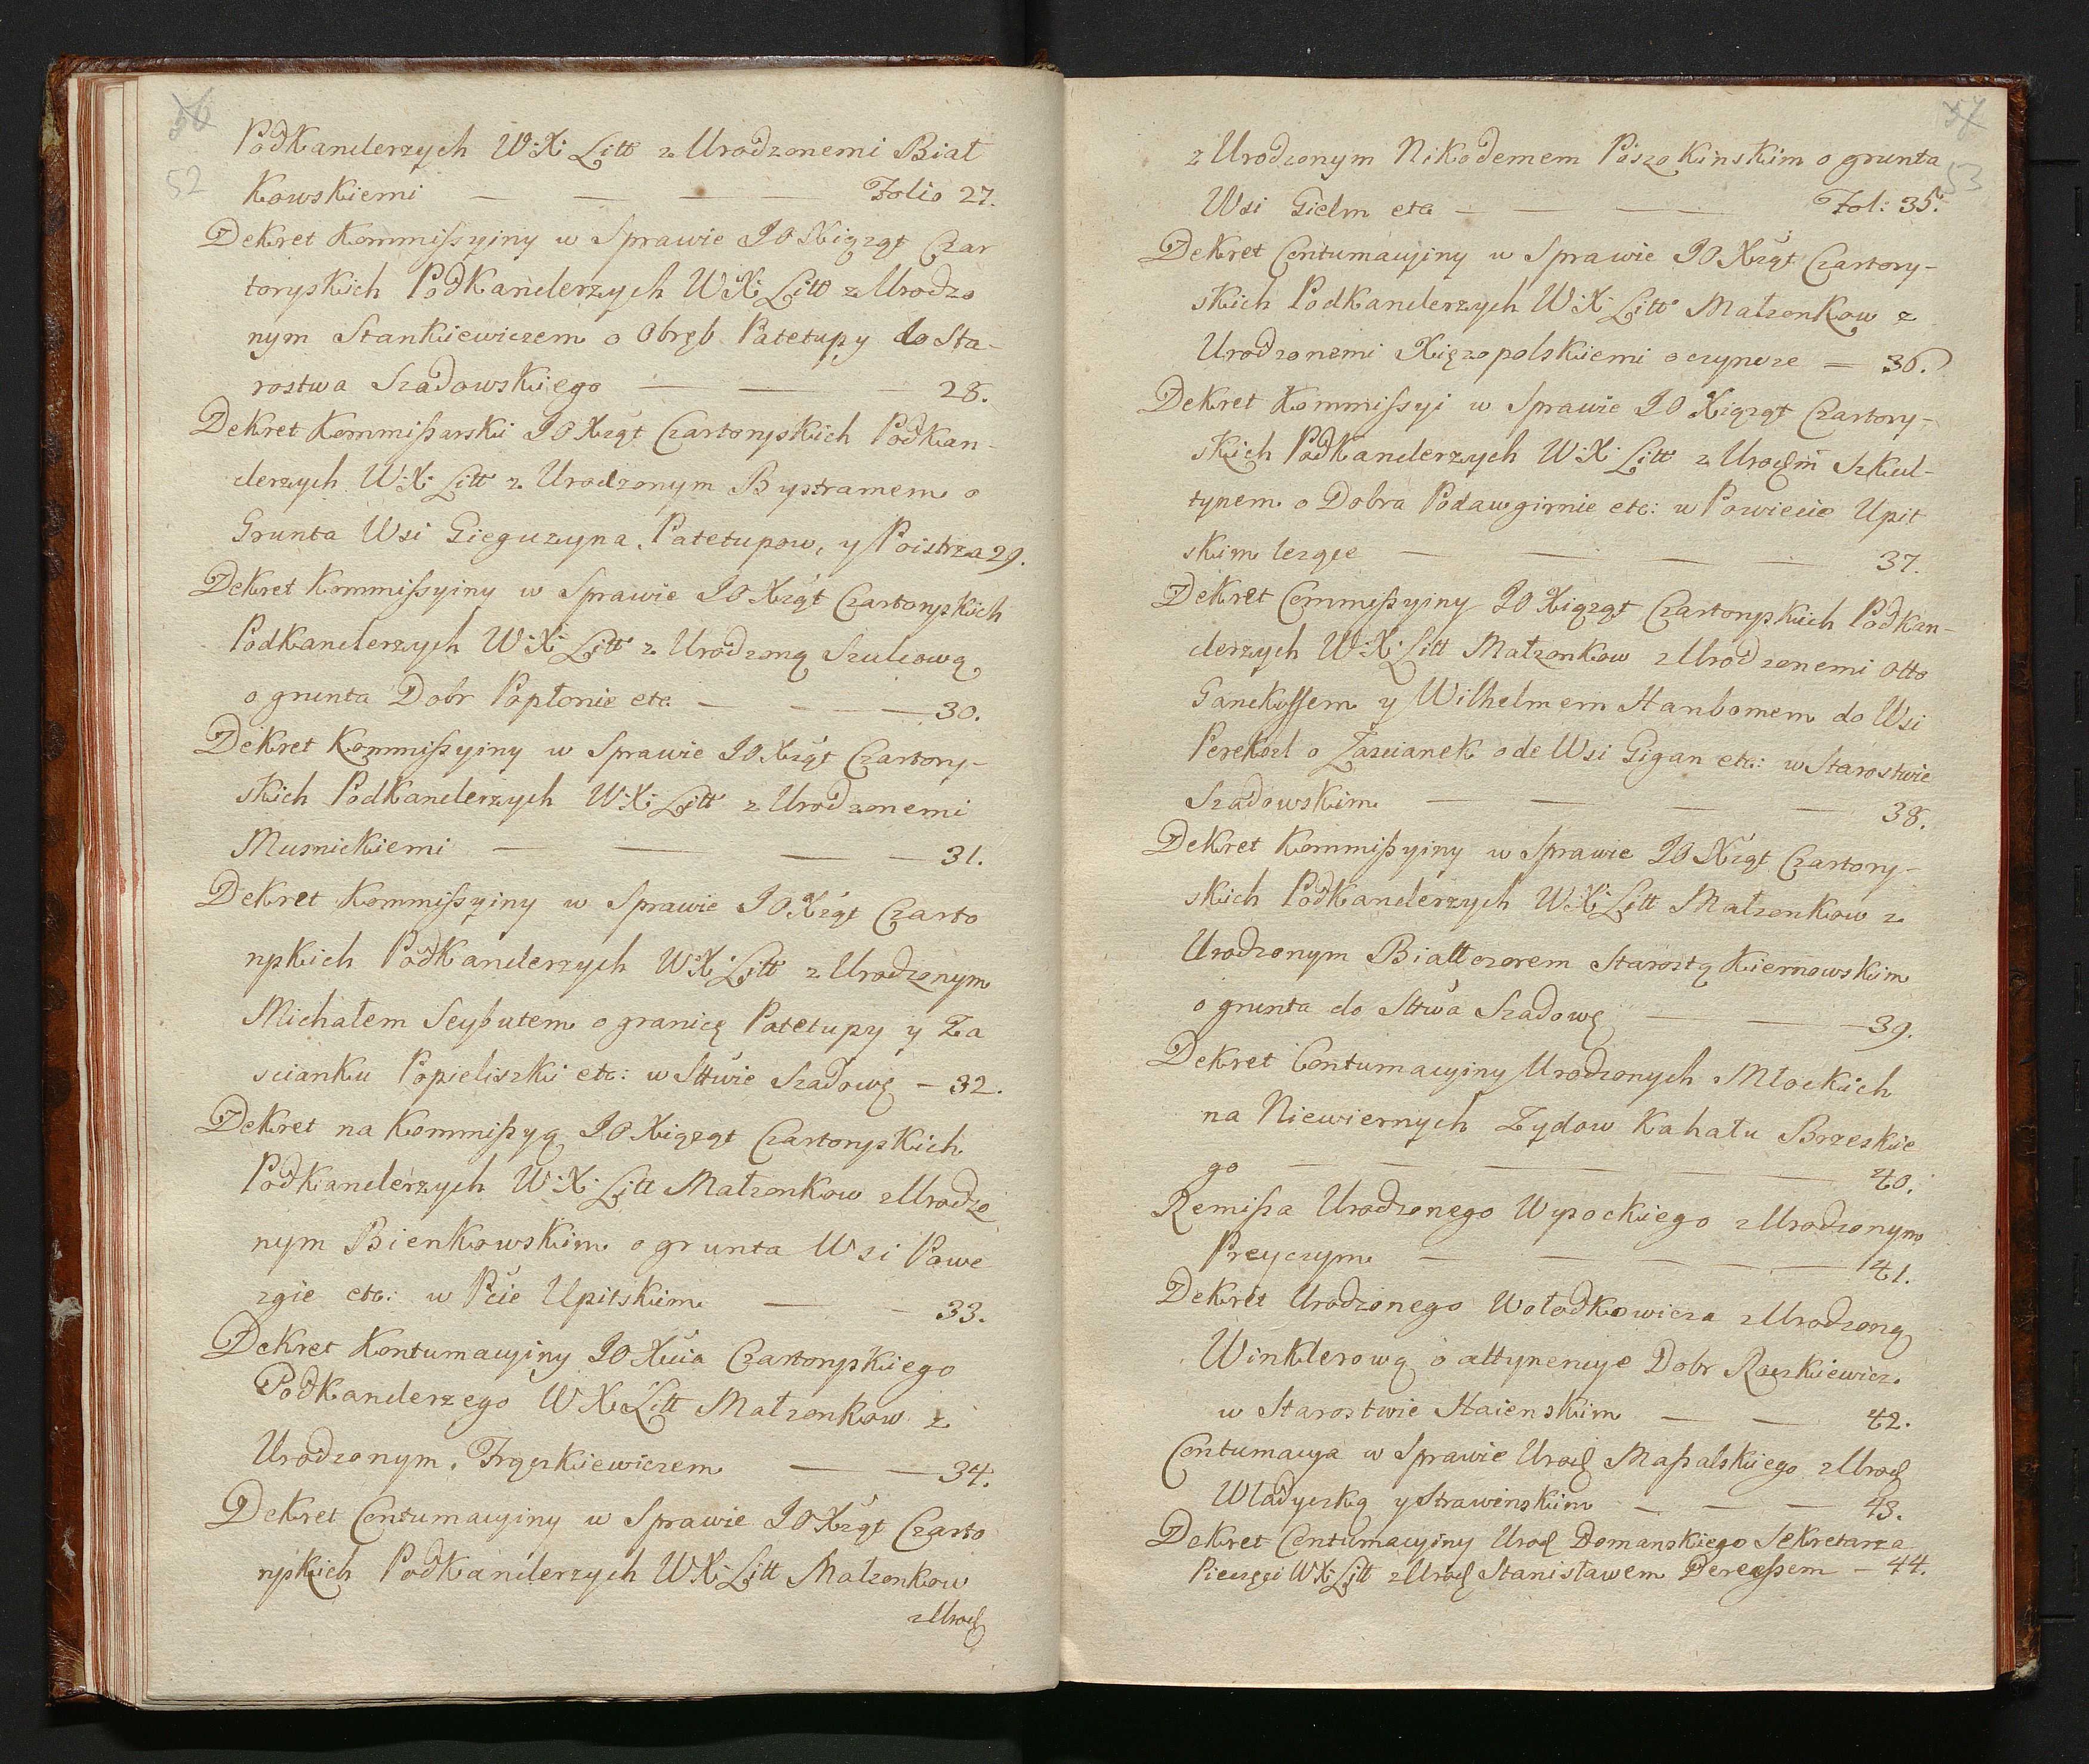 56
52
Podkanclerzych W:X: Litt z Urodzonemi Biał
kowskiemi — — — — Folio 27.
Dekret Kommissyiny w Sprawie JO Xiążąt Czar
toryskich Podkanclerzych W:X: Litt z Urodzo
nym Stankiewiczem o Obręb Patetupy do Sta-
rostwa Szadowskiego — — — 28.
Dekret Kommissarski JO Xżąt Czartoryskich Podkan-
clerzych W:X: Litt z Urodzonym Bystramem o
Grunta Wsi Gieguzyna, Patetupow, y Poistrza 29.
Dekret Kommissyiny w Sprawie JO Xżąt Czartoryskich
Podkanclerzych W:X: Litt z Urodzoną Szulcową
o grunta Dobr Popłonie etc — — — 30.
Dekret Kommissyiny w Sprawie JO Xżąt Czartory-
skich Podkanclerzych W:X: Litt z Urodzonemi
Musnickiemi — — — — 31.
Dekret Kommissyiny w Sprawie JO Xżąt Czarto
ryskich Podkanclerzych W:X: Litt z Urodzonym
Michałem Seybutem o granicę Patetupy y Za
scianku Popieliszki etc: w Sttwie Szadowę — 32.
Dekret na Kommissyą JO Xiążąt Czartoryskich
Podkanclerzych W:X: Litt Małzonkow z Urodzo
nym Bienkowskim o grunta Wsi Powe
zgie etc: w Pcie Upitskim — — 33.
Dekret Kontumacyiny JO Xcia Czartoryskiego
Podkanclerzego W:X: Litt Małzonkow z
Urodzonym Frąckiewiczem — — 34.
Dekret Contumacyiny w Sprawie JO Xżąt Czarto
ryskich Podkanclerzych W:X: Litt Małzonkow
z Urodz
57
53
z Urodzonym Nikodemem Poszokinskim o grunta
Wsi Gielm etc — — — Fol: 35.
Dekret Contumacyiny w Sprawie JO Xżąt Czartory-
skich Podkanclerzych W:X: Litt Małzonkow z
Urodzonemi Xięzopolskiemi o czynsze — 36.
Dekret Kommissyi w Sprawie JO Xiążąt Czartory-
skich Podkanclerzych W:X: Litt z Urodzm Szkul-
tynem o Dobra Podawgirnie etc: w Powiecie Upit
skim lezące — — — — 37.
Dekret Commissyiny JO Xiążąt Czartoryskich Podkan-
clerzych W:X: Litt Małzonkow z Urodzonemi Otto
Ganckuffem y Wilhelmem Hanbomem do Wsi
Perekszl o Zascianek ode Wsi Gigan etc: w Starostwie
Szadowskim — — — — 38.
Dekret Kommissyiny w Sprawie JO Xżąt Czartory-
skich Podkanclerzych W:X: Litt Małzonkow z
Urodzonym Biallozorem Starostą Kiernowskim
o grunta do Sttwa Szadowę — — — 39.
Dekret Contumacyiny Urodzonych Młockich
na Niewiernych Zydow Kahału Brzeskie
go — — — — — 40.
Remissa Urodzonego Wysockiego z Urodzonym
Preyczym — — — — — 41.
Dekret Urodzonego Wołodkowicza z Urodzoną
Winklerową o attynencye Dobr Raczkiewicz
w Starostwie Haienskim — — 42.
Contumacya w Sprawie Urodz Massalskiego z Urodz
Wladyczką y Strawinskim — — — 43.
Dekret Contumacyiny Urodz Domanskiego Sekretarza
Pieczęci W:X: Litt z Urodz Stanisławem Deressem — 44.